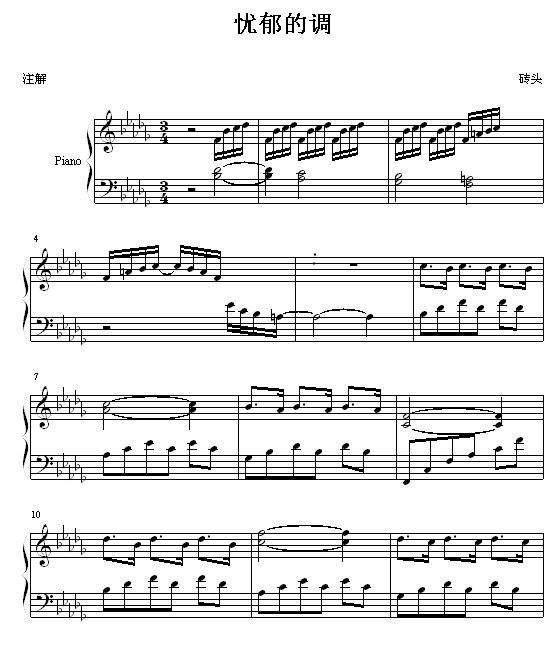 忧郁的调
注解 砖头
3 3
4 4
Piano
4
7
10